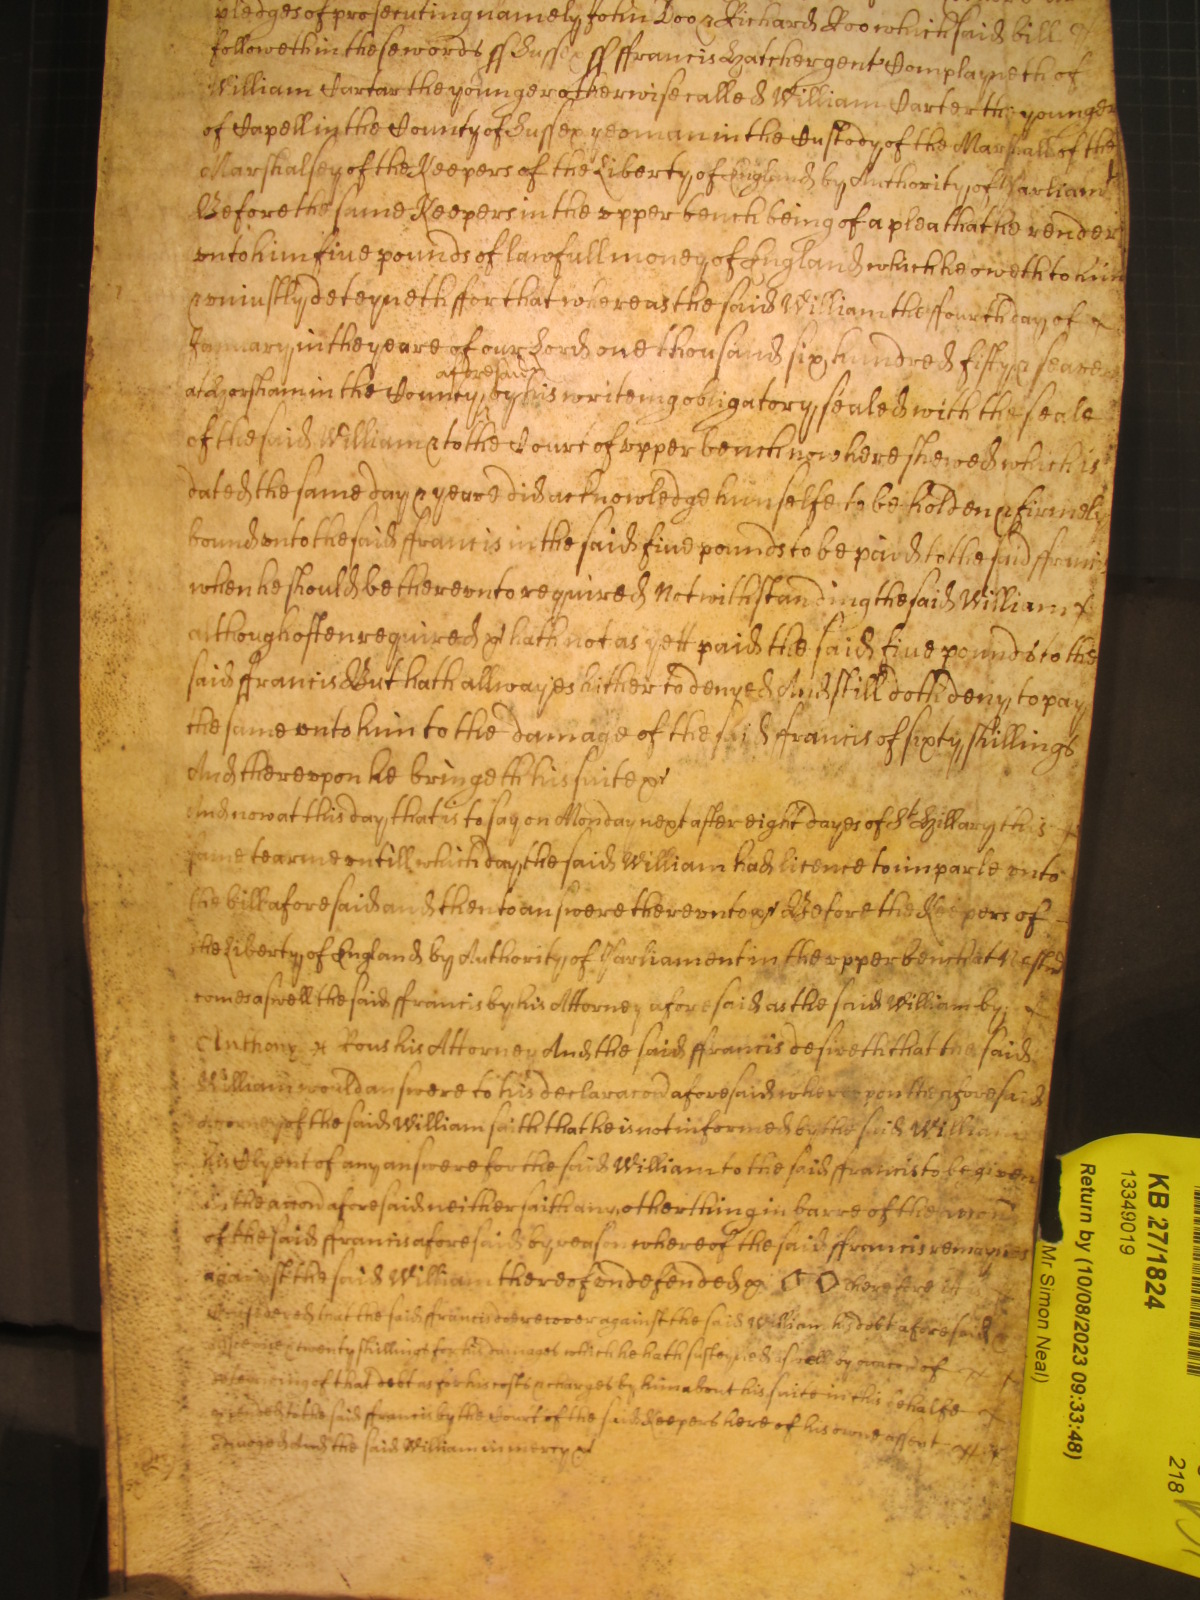 pledges of prosecuting namely John Doo & Richard Roo which said bill
followeth in these words ss Sussex ss ffrancis Hatcher gent Complayneth of
William Cartar the younger otherwise called William Carter the younger
of Capell in the County of Sussex yeoman in the Custody of the Marshall of the
Marshalsey of the Keepers of the Liberty of England by Authority of Parliamt
Before the same Keepers in the vpper bench being of a plea that he render
vnto him five pounds of lawfull money of England which he oweth to him
& vniustly deteyneth ffor that whereas the said William the ffourth day of
January in the yeare of our Lord one thousand six hundred fifty & seaven
at Horsham in the County aforesaid by his writeing obligatory sealed with the seale
of the said William & to the Court of vpper bench now here shewed which is
dated the same day & yeare did acknowledge himselfe to be holden & firmely
bound vnto the said ffrancis in the said five pounds to be paid to the said ffrancis
when he should be therevnto required Notwithstanding the said William
although often required &c hath not as yett paid the said five pounds to the
said ffrancis But hath allwayes hitherto denyed And still doth deny to pay
the same vnto him to the damage of the said ffrancis of sixty shillings
And therevpon he bringeth his suite &c
And now at this day that is to say on Monday next after eight dayes of St Hillary this
same tearme vntill which day the said William had licence to imparle vnto
the bill aforesaid and then to answere therevnto &c Before the Keepers of
the Liberty of England by Authority of Parliament in the vpper bench at Westm
comes aswell the said ffrancis by his Attorney aforesaid as the said William by
Anthony his Attorney And the said ffrancis desireth that the said
William would answere to his declaracon aforesaid wherevpon the aforesaid
Attorney of the said William saith that he is not informed by the said William
his Clyent of any answere for the said William to the said ffrancis to be given
in the accon aforesaid neither saith any other thing in barre of the accon
of the said ffrancis aforesaid by reason whereof the said ffrancis remaynes
against the said William thereof vndefended &c Therefore it is
Considered that the said ffrancis doe recover against the said William his debt aforesaid
twenty shillings for his damages which he hath susteyned aswell by occacon of
deteineing of that debt as for his costs & charges by him about his suite in this behalfe
to the said ffrancis by the Court of the said Keepers here of his owne assent
adiudged And the said William in mercy &c
KB 27/1824
13349019
Return by (10/08/2023 09:33:48)
Mr Simon Neal)
218